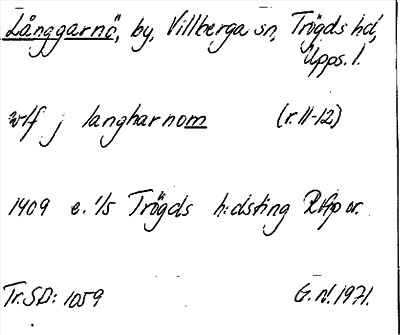 Långgarnö, by, Villberga sn, Trögds hd,
Upps. l.
wlf j langharnom (r. 11-12)
1409 e. 1/5 Trögds h:dsting RAp or.
Tr. SD: 1059 G.n! 1971.